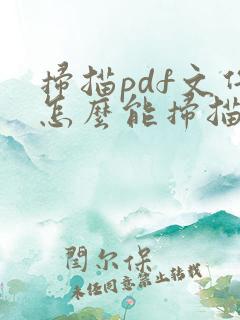 掃描pdf文件
怎麼能掃描
閆尔保
未经同意禁止转载